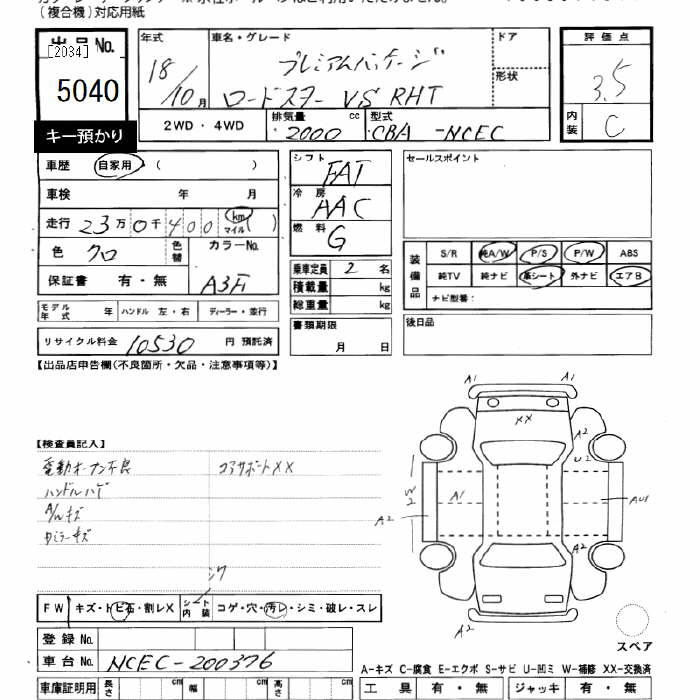 (複合機)対応用紙
出品No.
[2034]
5040
キー預かり
年式
18/10月
車名・グレード
プレミアムパッケージ
ロードスター VS RHT
ドア
形状
評価点
3.5
内装
C
2WD・4WD
排気量 2000 cc
型式 CBA-NCEC
車歴 自家用 ( )
車検 年 月
走行 23万0千400 km マイル ( )
色 クロ
色替
カラーNo.
A3F
保証書 有・無
モデル年式 年 ハンドル 左・右 ディーラー・並行
リサイクル料金 10530 円 預託済
シフト
FAT
冷房
AAC
燃料
G
乗車定員 2 名
積載量 kg
総重量 kg
書類期限
月 日
セールスポイント
装備品
S/R 純A/W P/S P/W ABS
純TV 純ナビ 革シート 外ナビ エアB
ナビ型番:
後日品
【出品店申告欄(不良箇所・欠品・注意事項等)】
【検査員記入】
電動オープン不良
コアサポートXX
ハンドルハゲ
A/Wキズ
カミラーキズ
シワ
A1 A1
XX
A2
U2
W2
A1
A2
A2
A2
FW キズ・トビ石・割レX
シート内装 コゲ・穴・汚レ・シミ・破レ・スレ
登録No.
車台No. NCEC-200376
車庫証明用 長さ cm 幅 cm 高さ cm
スペア
A-キズ C-腐食 E-エクボ S-サビ U-凹ミ W-補修 XX-交換済
工具 有・無 ジャッキ 有・無